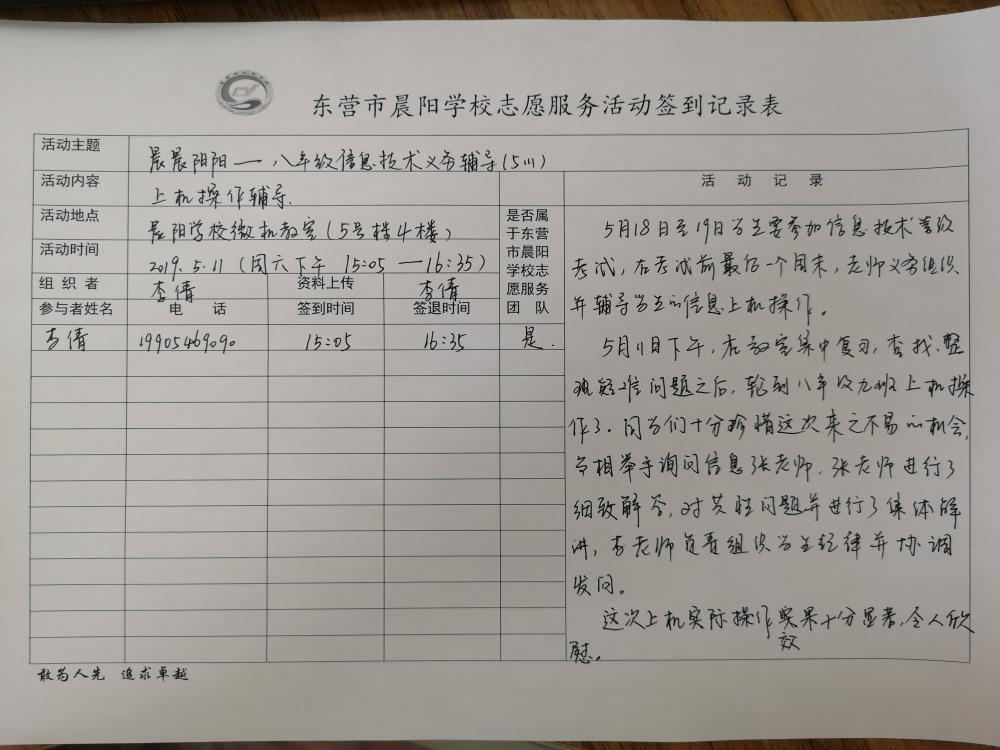 东营市晨阳学校志愿服务活动签到记录表
活动主题
晨晨阳阳——八年级信息技术义务辅导(5月)
活动内容
上机操作辅导.
活动地点
晨阳学校微机教室(5号楼4楼)
活动时间
2019.5.11(周六下午 15:05—16:35)
组织者
李倩
资料上传
李倩
参与者姓名
电话
签到时间
签退时间
是否属
于东营
市晨阳
学校志
愿服务
团队
李倩
19905469090
15:05
16:35
是.
活动记录
5月18日至19日学生要参加信息技术等级
考试,在考试前最后一个周末,老师义务组织、
并辅导学生的信息上机操作。
5月11日下午,在教室集中复习,查找、整
理疑难问题之后,轮到八年级九班上机操
作了.同学们十分珍惜这次来之不易的机会,
争相举手询问信息张老师,张老师进行了
细致解答,对共性问题并进行了集体解
讲,李老师负责组织学生纪律并协调
发问。
这次上机实际操作效果十分显著,令人欣
慰。
敢为人先 追求卓越